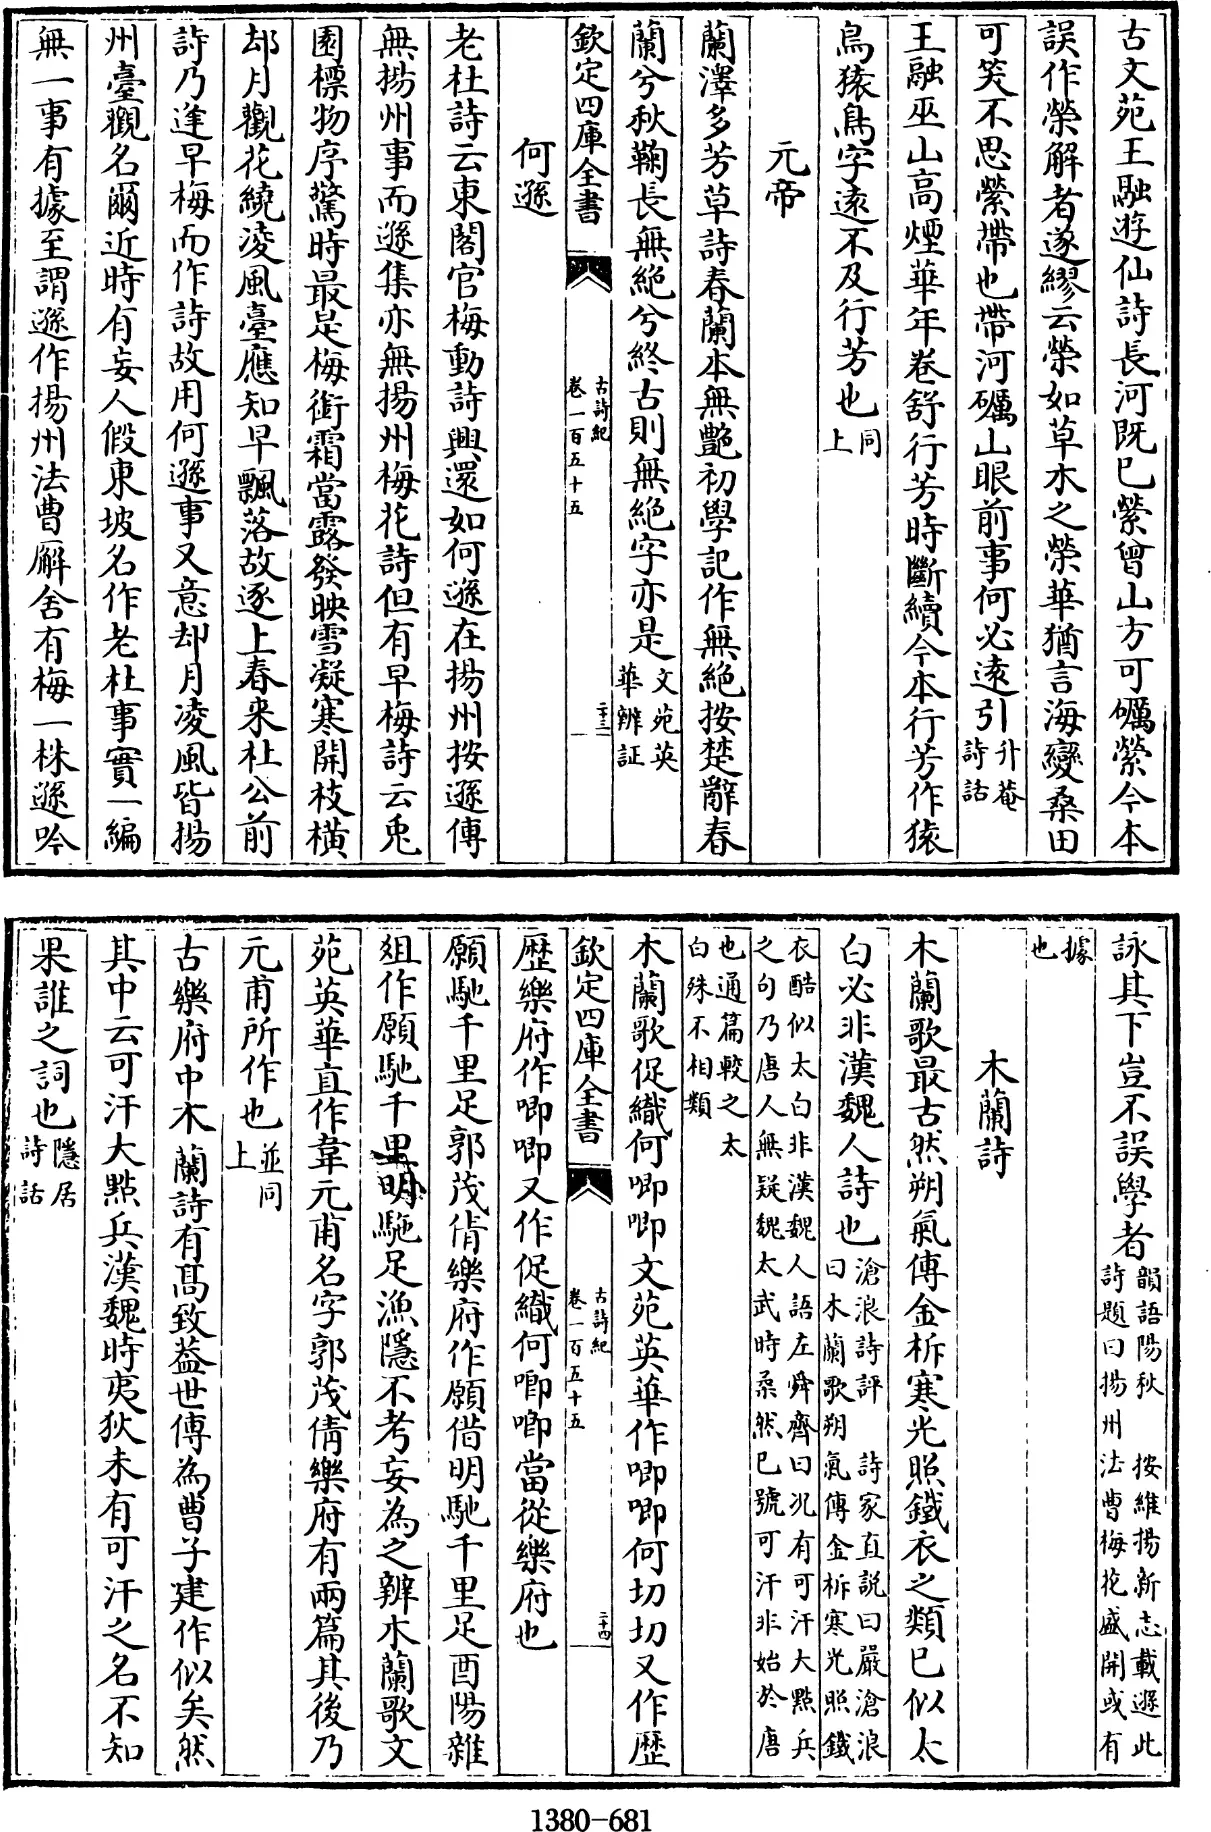 古文苑王融遊仙詩長河既已縈曾山方可礪縈今本
誤作榮解者遂繆云榮如草木之榮華猶言海變桑田
可笑不思縈帶也帶河礪山眼前事何必遠引升菴詩話
王融巫山高煙華年卷舒行芳時斷續今本行芳作猿
鳥猿鳥字遠不及行芳也同上
元帝
蘭澤多芳草詩春蘭本無艷初學記作無絕按楚辭春
蘭兮秋鞠長無絕兮終古則無絕字亦是文苑英華辨証
欽定四庫全書
古詩紀
卷一百五十五
二十三
何遜
老杜詩云東閣官梅動詩興還如何遜在揚州按遜傳
無揚州事而遜集亦無揚州梅花詩但有早梅詩云兎
園標物序驚時最是梅銜霜當露發映雪凝寒開枝橫
却月觀花繞凌風臺應知早飄落故逐上春来杜公前
詩乃逢早梅而作詩故用何遜事又意却月凌風皆揚
州臺觀名爾近時有妄人假東坡名作老杜事實一編
無一事有據至謂遜作揚州法曹廨舍有梅一株遜吟
詠其下豈不誤學者韻語陽秋 按維揚新志載遜此詩題曰揚州法曹梅花盛開或有
據也
木蘭詩
木蘭歌最古然朔氣傳金柝寒光照鐵衣之類已似太
白必非漢魏人詩也滄浪詩評 詩家直説曰嚴滄浪曰木蘭歌朔氣傳金柝寒光照鐵
衣酷似太白非漢魏人語左舜齊曰况有可汗大點兵之句乃唐人無疑魏太武時柔然已號可汗非始於唐
也通篇較之太白殊不相類
木蘭歌促織何唧唧文苑英華作唧唧何切切又作歷
欽定四庫全書
古詩紀
卷一百五十五
二十四
歷樂府作唧唧又作促織何唧唧當從樂府也
願馳千里足郭茂倩樂府作願借明馳千里足酉陽雜
俎作願馳千里明駞足漁隱不考妄為之辨木蘭歌文
苑英華直作韋元甫名字郭茂倩樂府有兩篇其後乃
元甫所作也並同上
古樂府中木蘭詩有高致益世傳為曹子建作似矣然
其中云可汗大點兵漢魏時夷狄未有可汗之名不知
果誰之詞也隱居詩話
1380-681